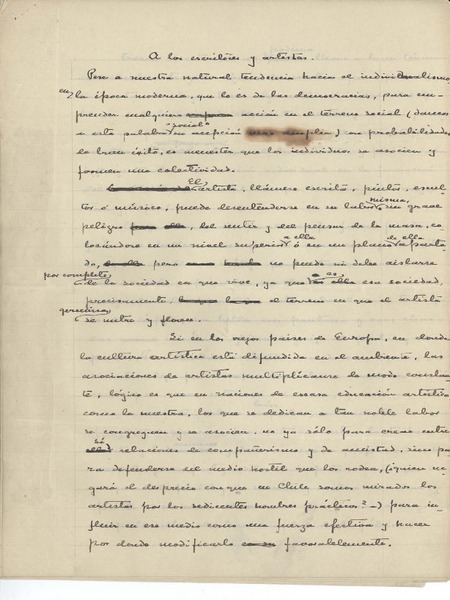 A los escritores y artistas.
Pese a nuestra natural tendencia hacia el individualismo
en la época moderna, que lo es de las democracias, para em-
prender cualquier acción en el terreno social (damos
"social"
a esta palabra su acepción más amplia) con probabilidades
de buen éxito, es menester que los individuos se asocien y
formen una colectividad.
El artista, llámese escritor, pintor, escul-
tor o músico, puede desentenderse en su labor misma, sin grave
peligro del sentir y del pensar de la masa, co-
locándose en un nivel superior a ella ó en un plano de ella aparta-
do, pero no puede ni debe aislarse
por completo, de la sociedad en que vive, ya que es a ella sociedad,
precisamente, el terreno en que el artista
germina, se nutre y florece.
Si en los viejos países de Europa, en donde
la cultura artística está difundida en el ambiente, las
asociaciones de artistas multiplícanse de modo constan-
te, lógico es que en naciones de escasa educación artística
como la nuestra, los que se dedican a tan noble labor
se congreguen y se asocien, no ya sólo para crear entre
sí relaciones de compañerismo y de amistad, sino pa-
ra defenderse del medio hostil que los rodea, (¿quien ne-
gará el desprecio con que en Chile somos mirados los
artistas por los sedicentes hombres prácticos? -) para in-
fluir en ese medio como una fuerza efectiva y hacer
por donde modificarlo favorablemente.